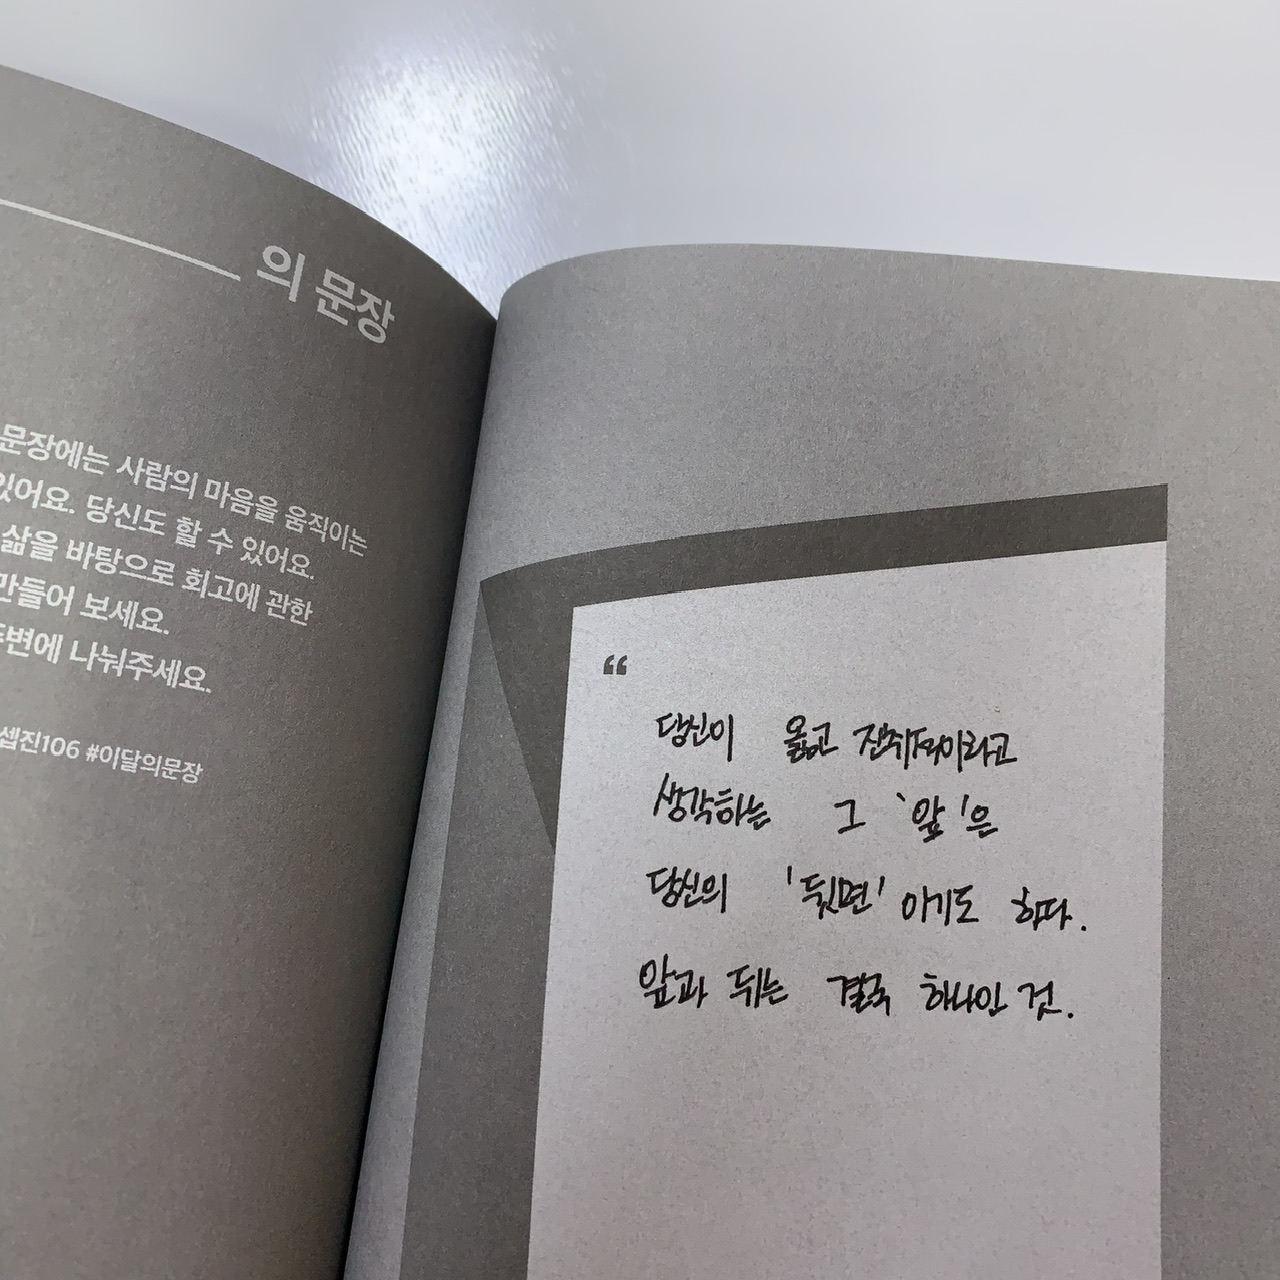 의 문장
문장에는 사람의 마음을 움직이는
있어요. 당신도 할 수 있어요.
삶을 바탕으로 회고에 관한
만들어 보세요.
변에 나눠주세요.
셉진106 #이달의문장
“
당신이 옳고 진취적이라고
생각하는 그 '앞'은
당신의 '뒷면' 이기도 하다.
앞과 뒤는 결국 하나인 것.